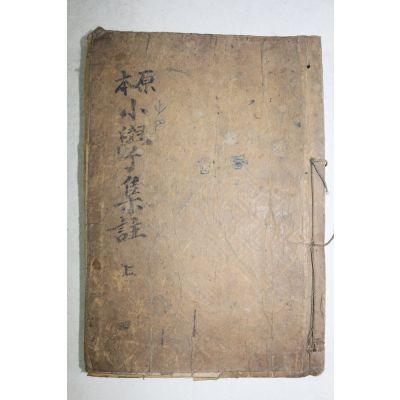 原本
小學集註
上